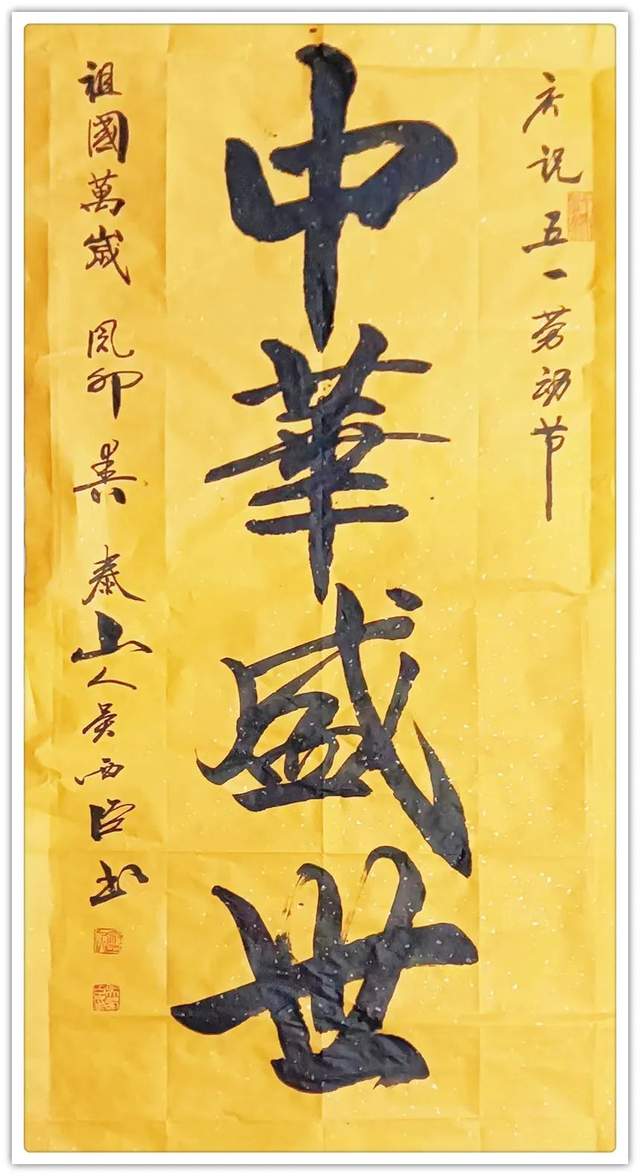 庆祝五一劳动节
中華盛世
祖國萬歲 卯 泰山人吴西臣书